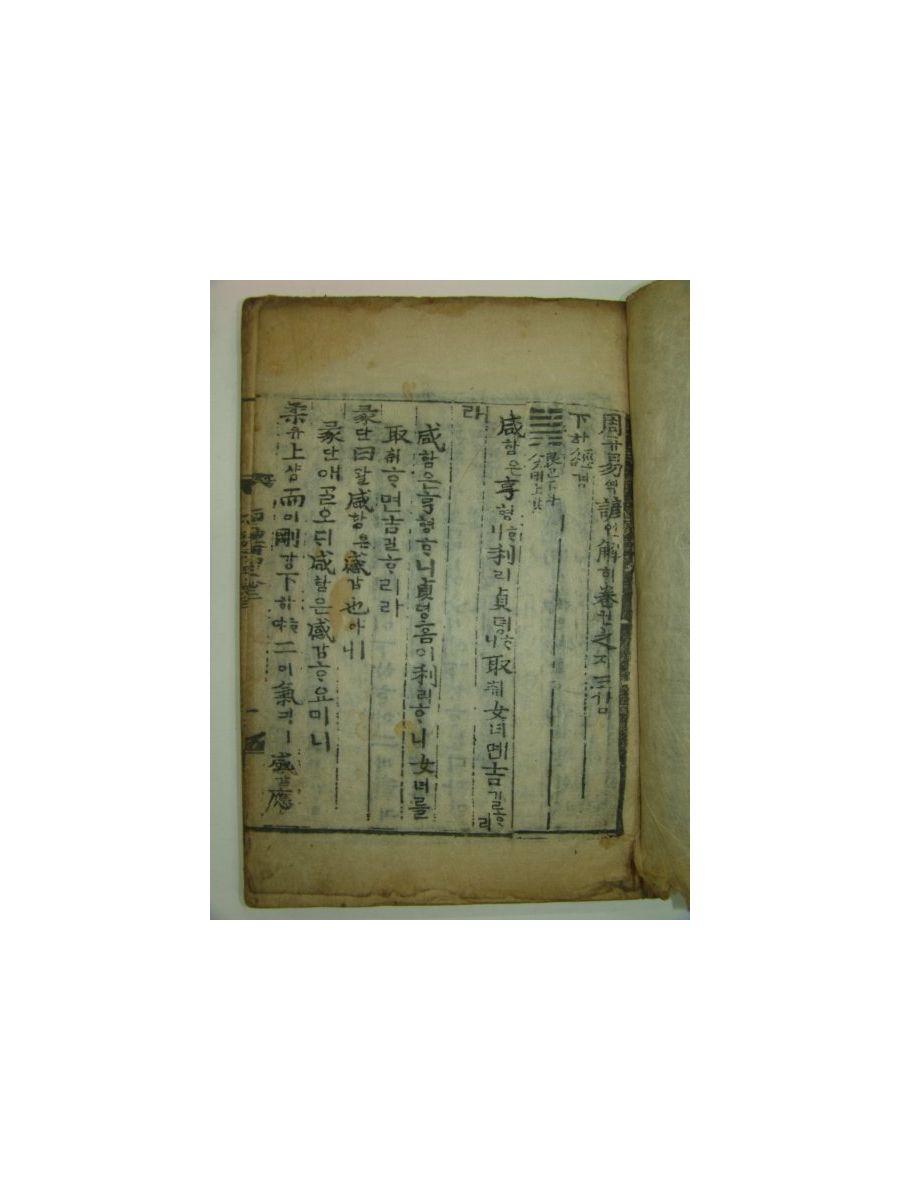 周쥬易역諺언解ᄒᆡ卷권之지三삼
下하經경
䷞ 艮간下하 兌태上샹
咸함은亨형ᄒᆞ니利리貞뎡ᄒᆞ니取츄女녀면吉길ᄒᆞ리
라
咸함은亨형ᄒᆞ니貞뎡홈이利리ᄒᆞ니女녀를
取츄ᄒᆞ면吉길ᄒᆞ리라
彖단曰왈咸함은感감也야ㅣ니
彖단애ᄀᆞᆯ오ᄃᆡ咸함은感감홈이니
柔유上샹而이剛강下하ᄒᆞ야二이氣긔ㅣ感감應